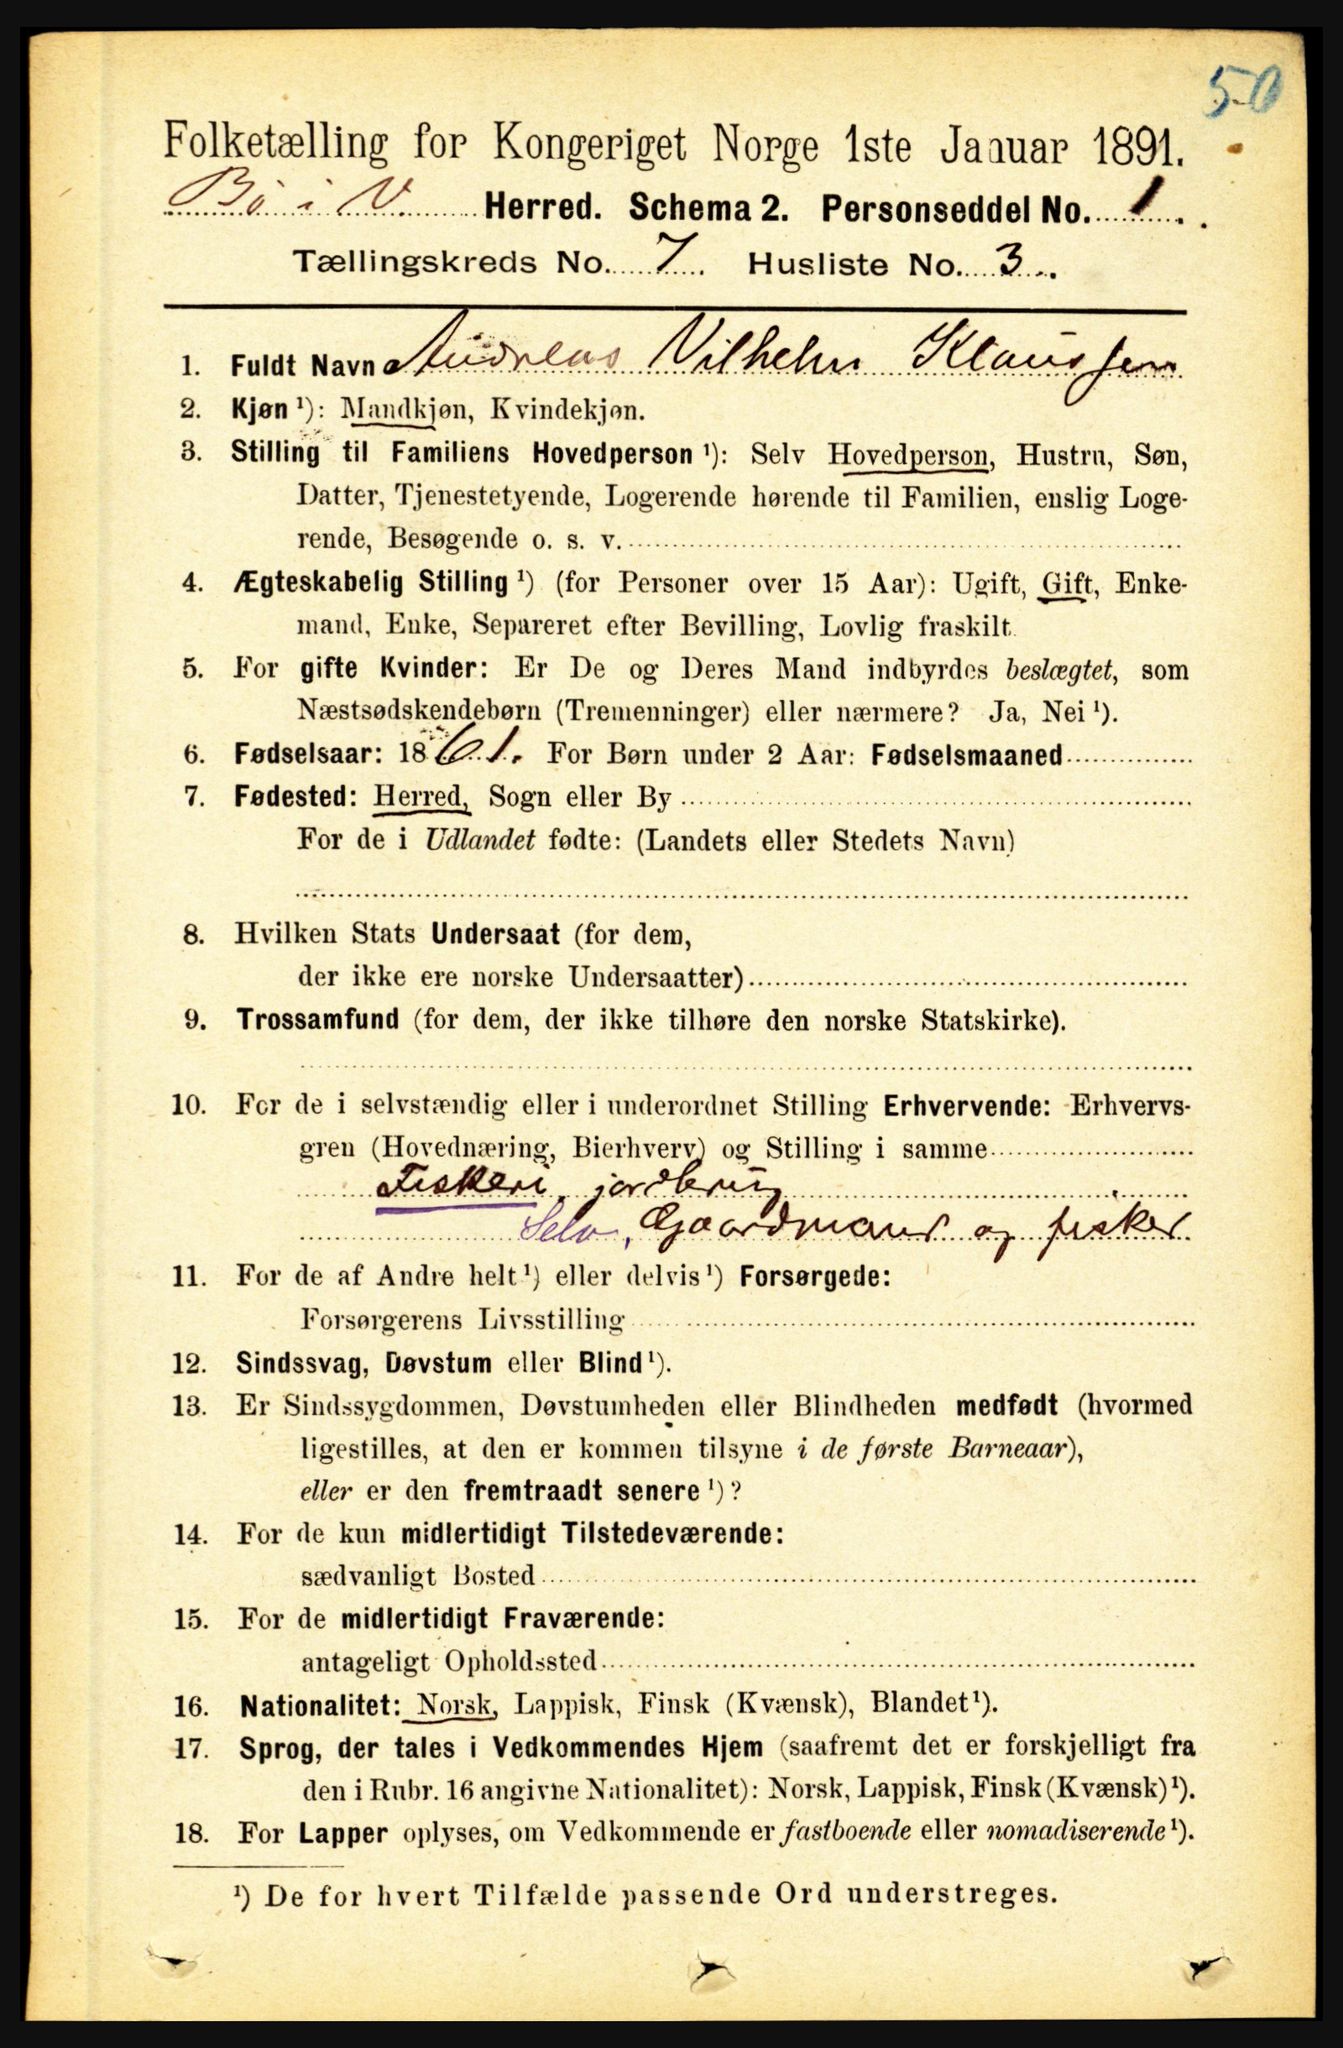 50
Folketælling for Kongeriget Norge 1ste Januar 1891.
Bø i V. Herred. Schema 2. Personseddel No. 1.
Tællingskreds No. 7. Husliste No. 3.
1. Fuldt Navn Andreas Vilhelm Klaussen
2. Kjøn ¹): Mandkjøn, Kvindekjøn.
3. Stilling til Familiens Hovedperson ¹): Selv Hovedperson, Hustru, Søn,
Datter, Tjenestetyende, Logerende hørende til Familien, enslig Loge-
rende, Besøgende o. s. v.
4. Ægteskabelig Stilling ¹) (for Personer over 15 Aar): Ugift, Gift, Enke-
mand, Enke, Separeret efter Bevilling, Lovlig fraskilt.
5. For gifte Kvinder: Er De og Deres Mand indbyrdes beslægtet, som
Næstsødskendebørn (Tremenninger) eller nærmere? Ja, Nei ¹).
6. Fødselsaar: 1861. For Børn under 2 Aar: Fødselsmaaned
7. Fødested: Herred, Sogn eller By
For de i Udlandet fødte: (Landets eller Stedets Navn)
8. Hvilken Stats Undersaat (for dem,
der ikke ere norske Undersaatter)
9. Trossamfund (for dem, der ikke tilhøre den norske Statskirke).
10. For de i selvstændig eller i underordnet Stilling Erhvervende: Erhvervs-
gren (Hovednæring, Bierhverv) og Stilling i samme
Fiskeri jordbrug
Selv, Gaardmand og fisker
11. For de af Andre helt ¹) eller delvis ¹) Forsørgede:
Forsørgerens Livsstilling
12. Sindssvag, Døvstum eller Blind ¹).
13. Er Sindssygdommen, Døvstumheden eller Blindheden medfødt (hvormed
ligestilles, at den er kommen tilsyne i de første Barneaar),
eller er den fremtraadt senere ¹)?
14. For de kun midlertidigt Tilstedeværende:
sædvanligt Bosted
15. For de midlertidigt Fraværende:
antageligt Opholdssted
16. Nationalitet: Norsk, Lappisk, Finsk (Kvænsk), Blandet ¹).
17. Sprog, der tales i Vedkommendes Hjem (saafremt det er forskjelligt fra
den i Rubr. 16 angivne Nationalitet): Norsk, Lappisk, Finsk (Kvænsk) ¹).
18. For Lapper oplyses, om Vedkommende er fastboende eller nomadiserende ¹).
¹) De for hvert Tilfælde passende Ord understreges.